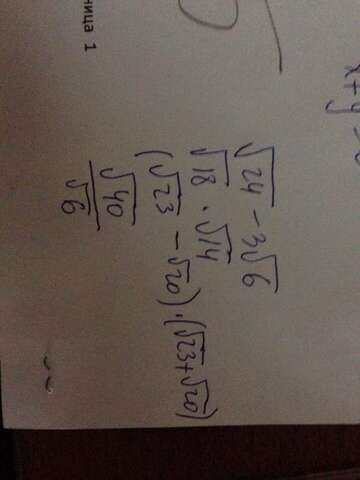 ница 1
x+y
√24 - 3√6
√18 · √14
(√23 - √20) · (√23 + √20)
√40
√6